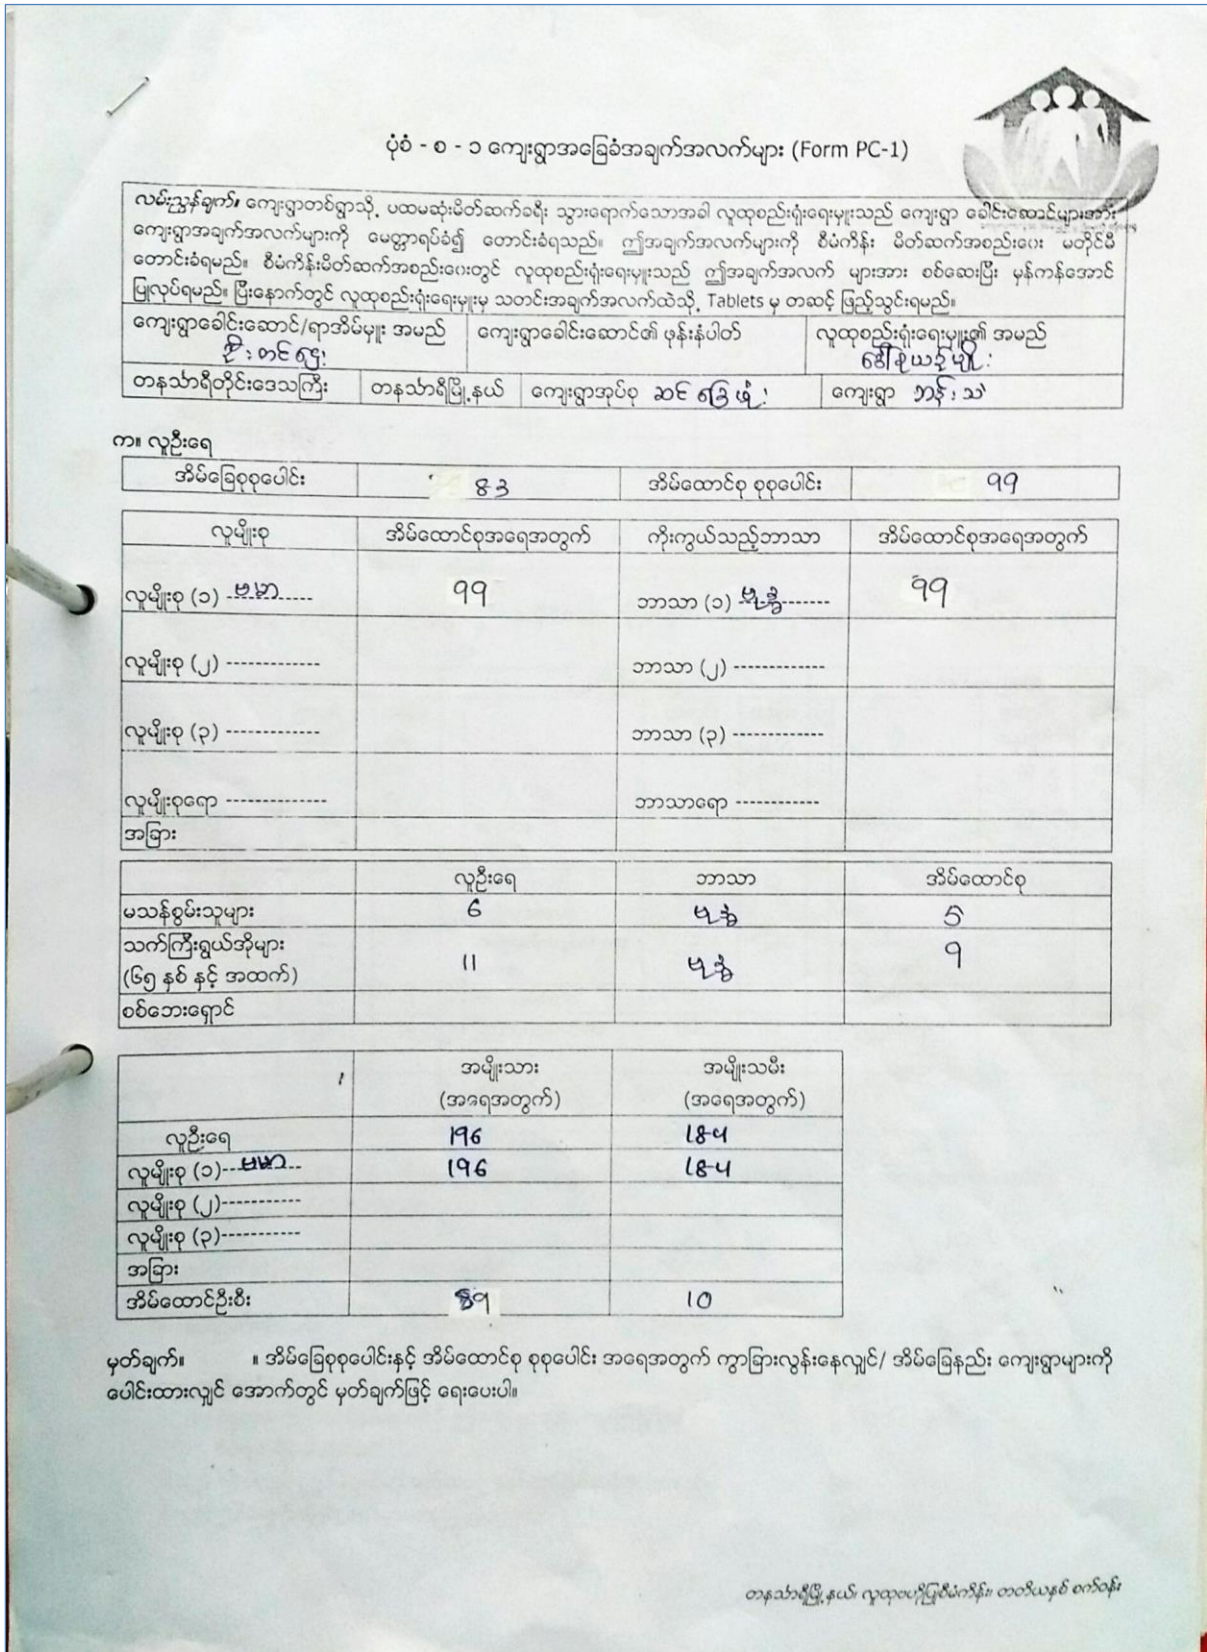 ပုံစံ - စ - ၁ ကျေးရွာအခြေခံအချက်အလက်များ (Form PC-1)
လမ်းညွှန်ချက်။ ကျေးရွာတစ်ရွာသို့ ပထမဆုံးမိတ်ဆက်ခရီး သွားရောက်သောအခါ လူထုစည်းရုံးရေးမှူးသည် ကျေးရွာ ခေါင်းဆောင်များအား
ကျေးရွာအချက်အလက်များကို မေတ္တာရပ်ခံ၍ တောင်းခံရသည်။ ဤအချက်အလက်များကို စီမံကိန်း မိတ်ဆက်အစည်းဝေး မတိုင်မီ
တောင်းခံရမည်။ စီမံကိန်းမိတ်ဆက်အစည်းဝေးတွင် လူထုစည်းရုံးရေးမှူးသည် ဤအချက်အလက် များအား စစ်ဆေးပြီး မှန်ကန်အောင်
ပြုလုပ်ရမည်။ ပြီးနောက်တွင် လူထုစည်းရုံးရေးမှူးမှ သတင်းအချက်အလက်ထဲသို့ Tablets မှ တဆင့် ဖြည့်သွင်းရမည်။
ကျေးရွာခေါင်းဆောင်/ရာအိမ်မှူး အမည် ကျေးရွာခေါင်းဆောင်၏ ဖုန်းနံပါတ် လူထုစည်းရုံးရေးမှူး၏ အမည်
ဦးတင်ဌေး
တနင်္သာရီတိုင်းဒေသကြီး တနင်္သာရီမြို့နယ် ကျေးရွာအုပ်စု ဆင်ခြေဖုံး ကျေးရွာ ဘန်းသဲ
က။ လူဦးရေ
အိမ်ခြေစုစုပေါင်း 83 အိမ်ထောင်စု စုစုပေါင်း 99
လူမျိုးစု အိမ်ထောင်စုအရေအတွက် ကိုးကွယ်သည့်ဘာသာ အိမ်ထောင်စုအရေအတွက်
လူမျိုးစု (၁) ဗမာ 99 ဘာသာ (၁) ဗုဒ္ဓ 99
လူမျိုးစု (၂) ------------- ဘာသာ (၂) -------------
လူမျိုးစု (၃) ------------- ဘာသာ (၃) -------------
လူမျိုးစုရော -------------- ဘာသာရော ------------
အခြား
လူဦးရေ ဘာသာ အိမ်ထောင်စု
မသန်စွမ်းသူများ 6 ဗုဒ္ဓ 5
သက်ကြီးရွယ်အိုများ
(၆၅ နှစ် နှင့် အထက်) 11 ဗုဒ္ဓ 9
စစ်ဘေးရှောင်
အမျိုးသား အမျိုးသမီး
(အရေအတွက်) (အရေအတွက်)
လူဦးရေ 196 184
လူမျိုးစု (၁)--ဗမာ-- 196 184
လူမျိုးစု (၂)-----------
လူမျိုးစု (၃)-----------
အခြား
အိမ်ထောင်ဦးစီး 89 10
မှတ်ချက်။ ။ အိမ်ခြေစုစုပေါင်းနှင့် အိမ်ထောင်စု စုစုပေါင်း အရေအတွက် ကွာခြားလွန်းနေလျှင်/ အိမ်ခြေနည်း ကျေးရွာများကို
ပေါင်းထားလျှင် အောက်တွင် မှတ်ချက်ဖြင့် ရေးပေးပါ။
တနင်္သာရီမြို့နယ်၊ လူထုဗဟိုပြုစီမံကိန်း၊ တတိယနှစ် စက်ဝန်း